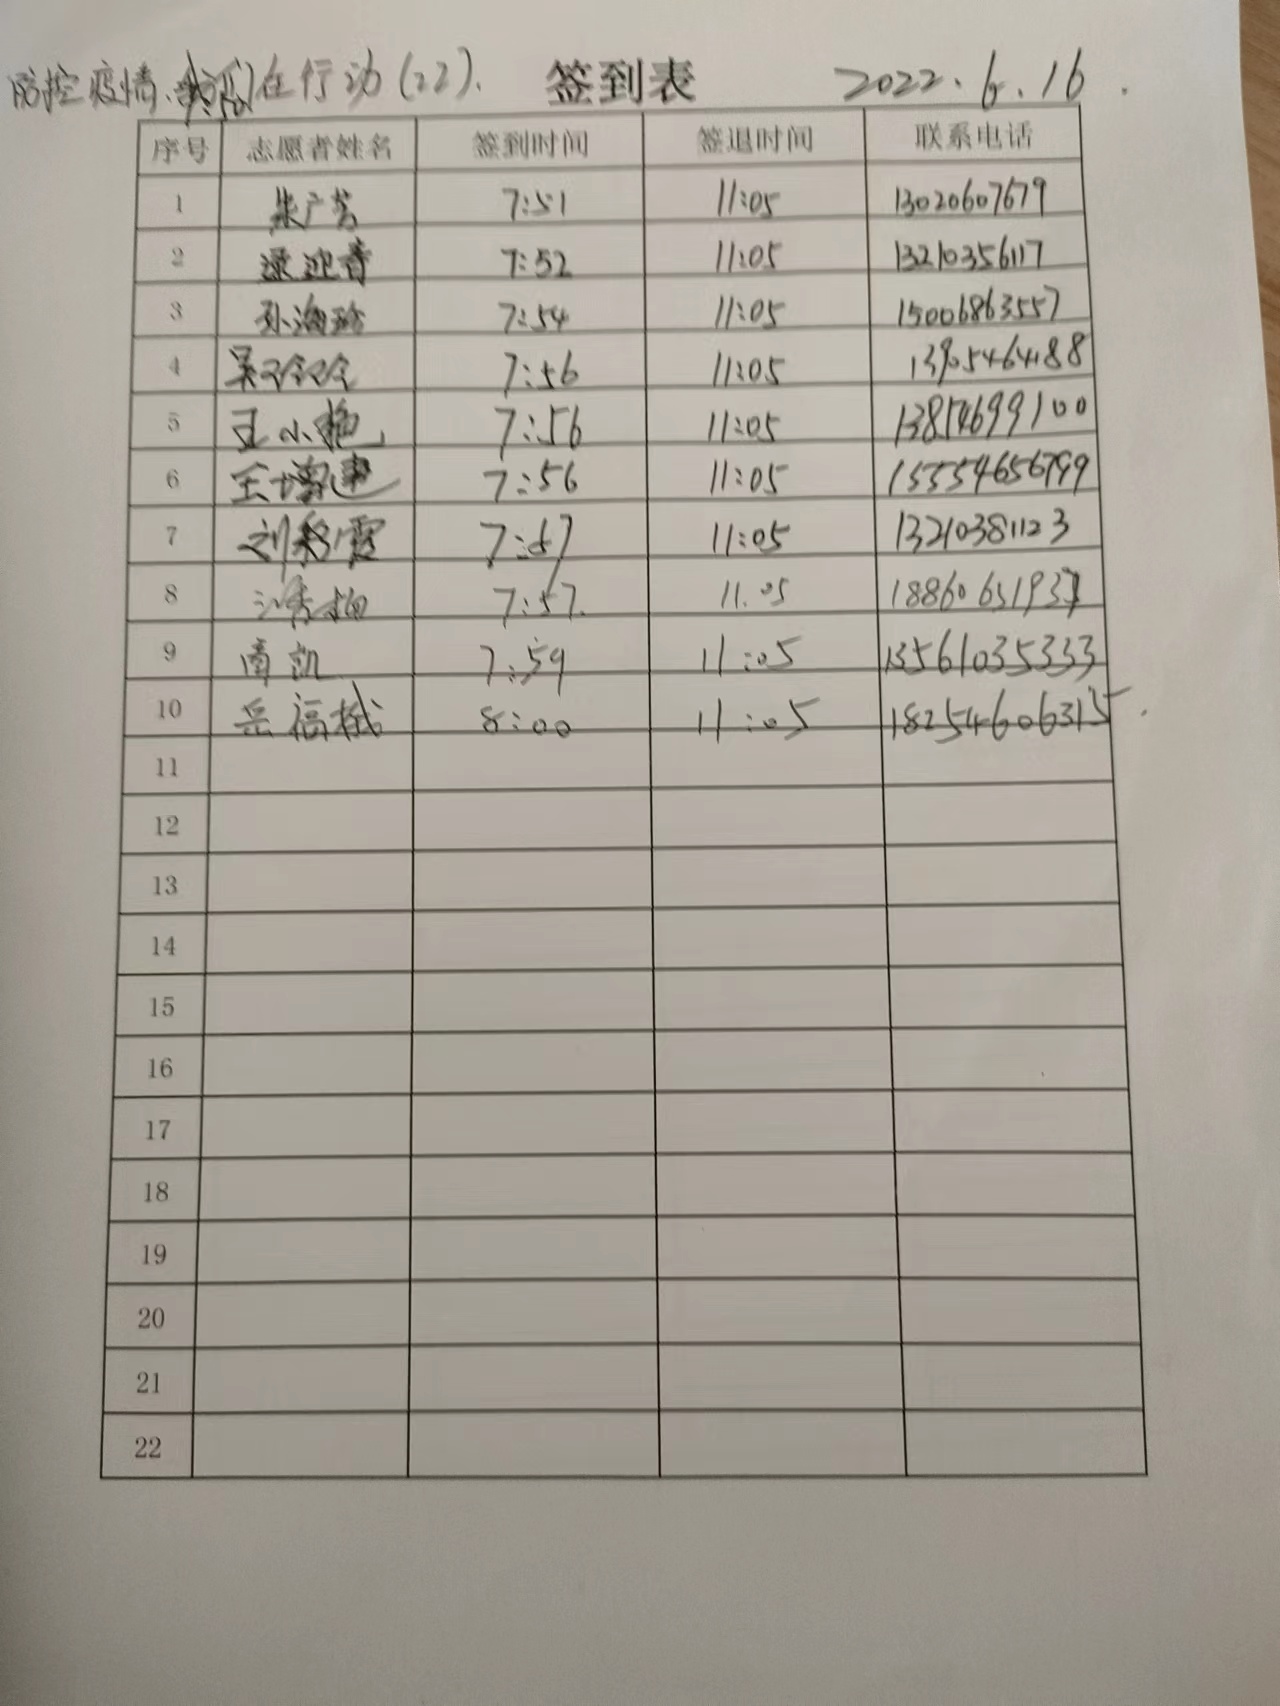 防控疫情、我们在行动(22). 签到表 2022.6.16.
序号 志愿者姓名 签到时间 签退时间 联系电话
1 朱广芳 7:51 11:05 13020607679
2 逯迎春 7:52 11:05 13210356117
3 孙海珍 7:54 11:05 15006863557
4 吴玲玲 7:56 11:05 13905464188
5 王小艳 7:56 11:05 13854699100
6 王增建 7:56 11:05 15554656799
7 刘彩霞 7:57 11:05 13210381123
8 7:57. 11.05
9 凯 7:59 11:05 13561035333
10 岳福 8:00 11:05 18254606315.
11
12
13
14
15
16
17
18
19
20
21
22